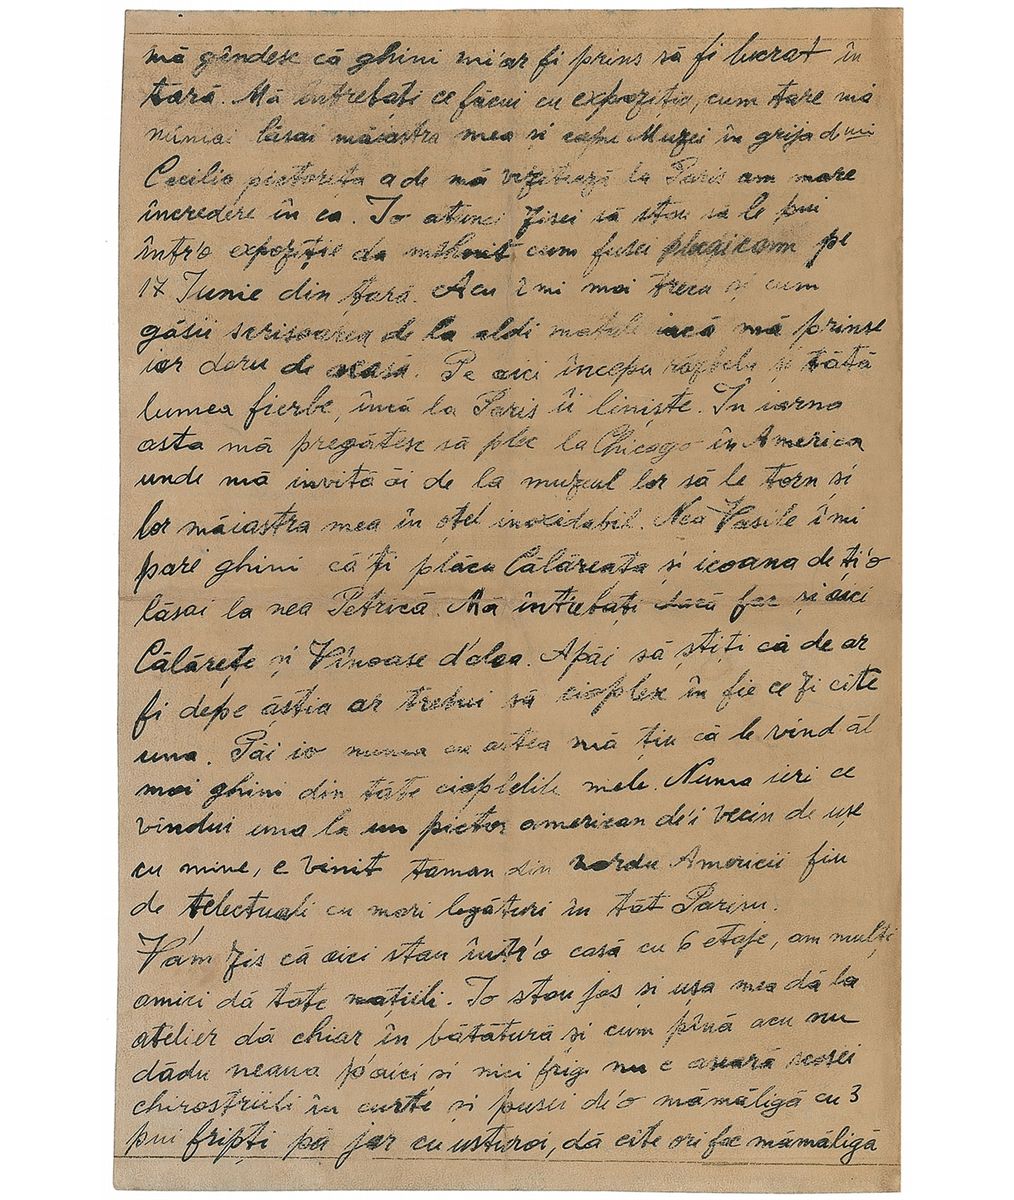 mă gîndesc că ghini mi'ar fi prins să fi lucrat în
țară. Mă întrebați ce făcui cu expoziția, cum tare mă
numai lăsai măiastra mea și capu Muzei în grija dnii
Cecilia pictorița a de mă vizitează la Paris am mare
încredere în ea. Io atunci zisei să stau să le pui
într'o expoziție da cum fusei pe
17 Iunie din țară. Acu îmi mai trecu și cum
găsii scrisoarea de la aldi matale iacă mă prinse
iar doru de acasă. Pe aici începu răzbelu și tătă
lumea fierbe, încă la Paris îi liniște. În iarna
asta mă pregătesc să plec la Chicago în America
unde mă invită ăi de la muzeul lor să le torn și
lor măiastra mea în oțel inoxidabil. Nea Vasile îmi
pare ghini că ți plăcu Călăreața și icoana de ți'o
lăsai la nea Petrică. Mă întrebați dacă fac și aici
Călărețe și Vînoase d'alea. Apăi să știți că de ar
fi depe ăștia ar trebui să cioplesc în fie ce zi cite
una. Păi io numa cu astea mă țiu că le vînd ăl
mai ghini din tăte ciopletili mele. Numa ieri ce
vîndui una la un pictor american de'i vecin de ușe
cu mine, e vinit taman din nordu Americii fiu
de telectuali cu mari legături în tăt Parisu.
V'am zis că aici stau într'o casă cu 6 etaje, am mulți
amici dă tăte națiili. Io stau jos și ușa mea dă la
atelier dă chiar în bătătură și cum pînă acu nu
dădu neaua p'aici și nici frig nu e scosei
chirostriili în curte și pusei de'o mămăligă cu 3
pui fripți pă jar cu usturoi, dă cite ori fac mămăligă